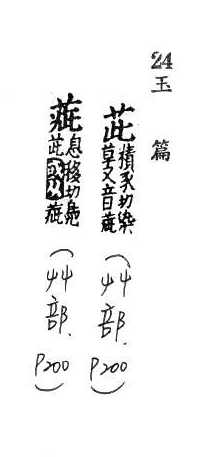 24 玉篇
茈 積豕切染草又音疵 (艸部. P200)
息移切鳧茈 (艸部. P200)